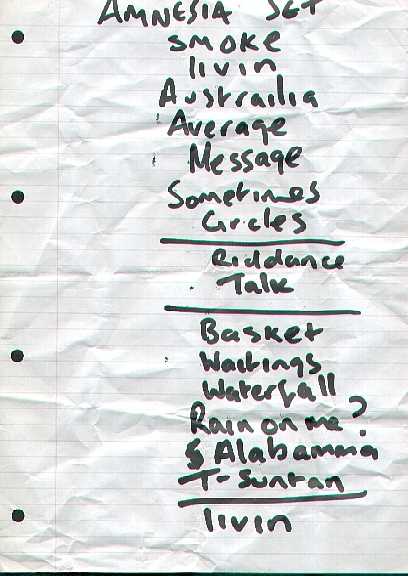 AMNESIA SET
smoke
livin
Austrailia
Average
Message
Sometimes
Circles
Riddance
Talk
Basket
Waitings
Waterfall
Rain on me?
§ Alabamma
T-Suntan
livin